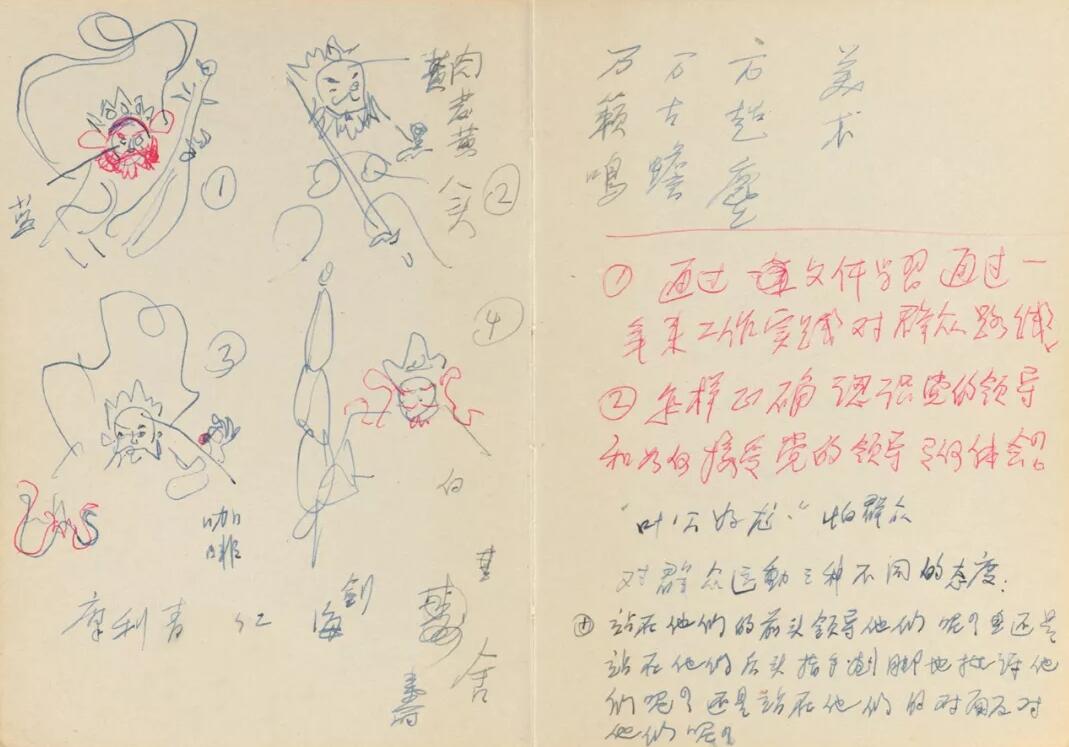 蓝
①
黄肉
老黄
②
③
咖啡
④
白
摩利青
海
剑
寿
万籁鸣
万古蟾
万超塵
美术
① 通过文件学習通过一
年来工作实践对群众路线
② 怎样正确認识党的领导
和如何接受党的领导体会。
"叶公好龙"怕群众
对群众运動三种不同的态度.
站在他们的前头领导他们呢?还是
站在他们后头指手划脚地批评他
们呢?还是站在他们的对面反对
他们呢?